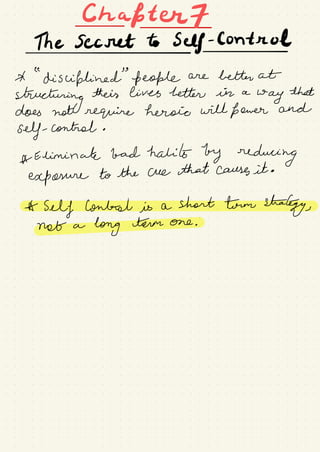 Chapter 7
The Secret to Self-Control
* "disciplined" people are better at
structuring their lives better in a way that
does not require heroic willpower and
self-control.
* Eliminate bad habits by reducing
exposure to the cue that causes it.
* Self Control is a short term strategy,
not a long term one.